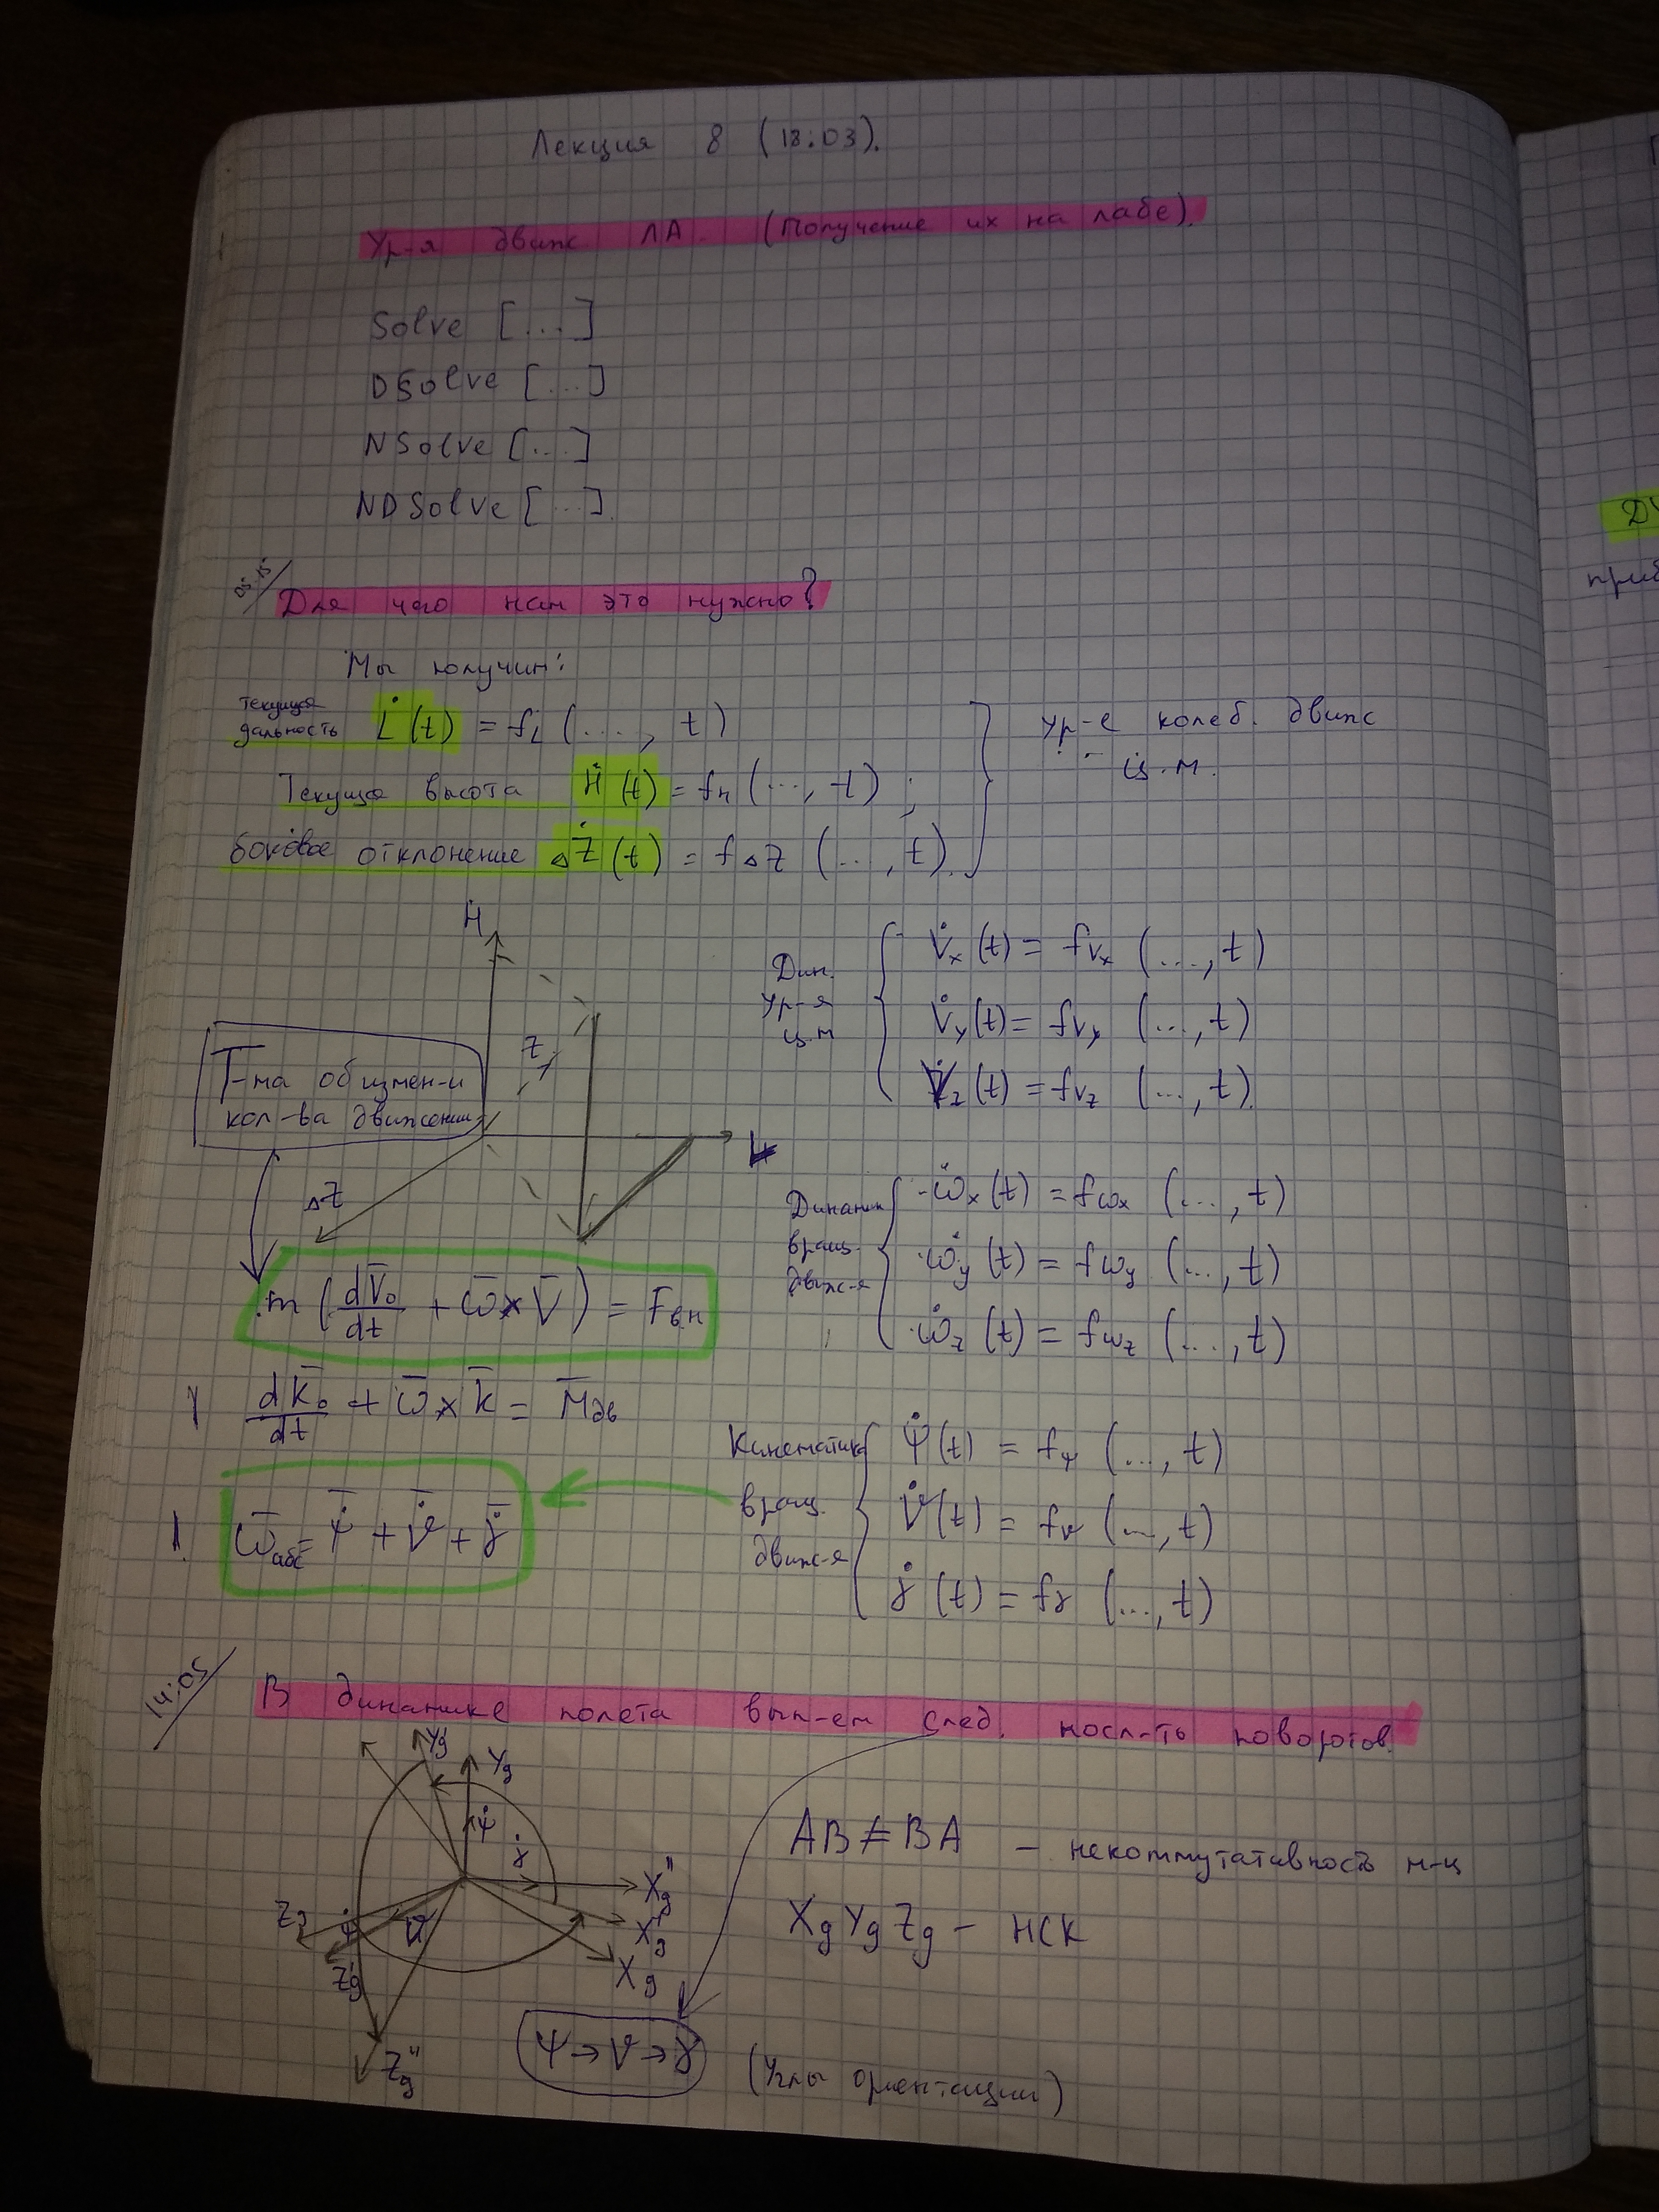 Лекция 8 (18.03).
Ур-я движ ЛА. (Получение их на лабе).
Solve [...]
DSolve [...]
NSolve [...]
NDSolve [...].
05:15
Для чего нам это нужно?
Мы получим:
текущая дальность L̇(t) = f_L (..., t)
Текущая высота Ḣ(t) = f_н (..., t) ;
боковое отклонение ΔŻ(t) = f_ΔZ (..., t).
ур-е колеб. движ
ц.м.
H
Z
L
ΔZ
Т-ма об измен-и
кол-ва движения
Дин. ур-я ц.м
V̇x (t) = fVx (..., t)
V̇y (t) = fVy (..., t)
V̇z (t) = fVz (..., t).
m (dV̄₀/dt + ω̄ × V̄) = Fвн
dk̄₀/dt + ω̄ × k̄ = M̄дв
ω̄абс = ψ̇ + ϑ̇ + γ̇
Динамик вращ. движ-я
ω̇x (t) = fωx (..., t)
ω̇y (t) = fωy (..., t)
ω̇z (t) = fωz (..., t)
Кинематика вращ. движ-я
ψ̇(t) = fψ (..., t)
ϑ̇(t) = fϑ (..., t)
γ̇(t) = fγ (..., t)
14:05
В динамике полета вып-ем след. посл-ть поворотов.
Yg'
Yg
ψ̇
γ̇
Xg''
Xg'
Xg
Zg
ψ
ϑ̇
Zg'
Zg''
AB ≠ BA – некоммутативность м-ц
Xg Yg Zg – НСК
ψ → ϑ → γ (Углы ориентации)
ДУ
приб